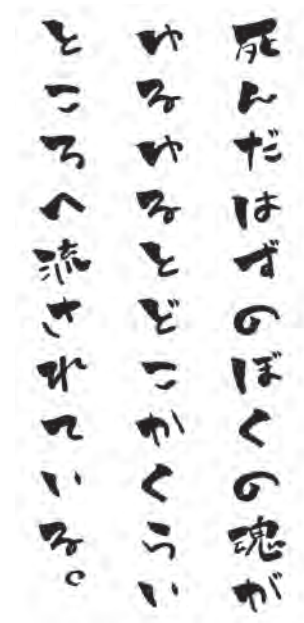 死んだはずのぼくの魂が
ゆるゆるとどこかくらい
ところへ流されている。